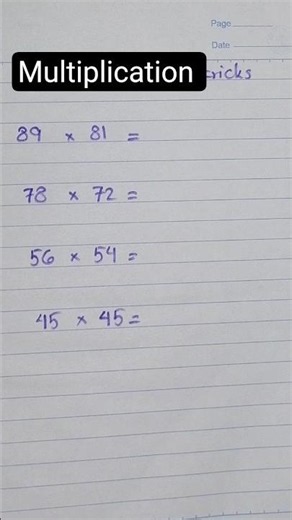 Page
Date
Multiplication tricks
89 × 81 =
78 × 72 =
56 × 54 =
45 × 45 =